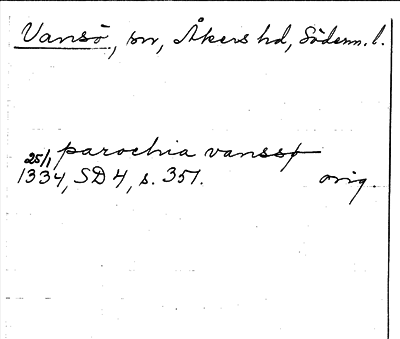 Vansö, sn, Åkers hd, Söderm. l.
25/1 parochia vanssø
1334, SD 4, s. 351. orig.